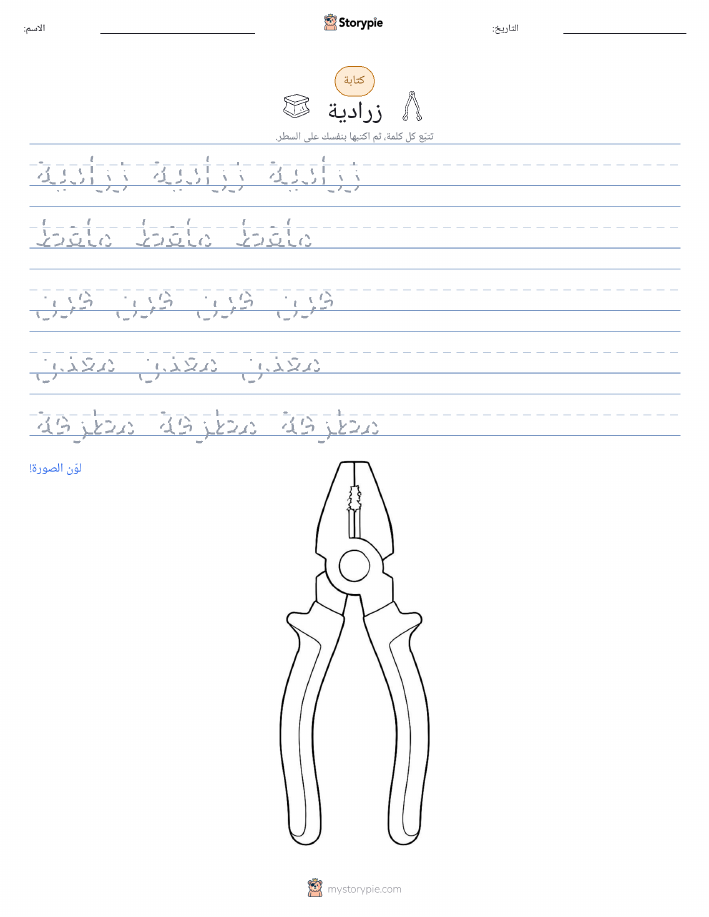 الاسم:
Storypie
التاريخ:
كتابة
زرادية
تتبّع كل كلمة، ثم اكتبها بنفسك على السطر.
زرادية زرادية زرادية
ملقط ملقط ملقط
فرن فرن فرن فرن
معدن معدن معدن
مطرقة مطرقة مطرقة
لوّن الصورة!
mystorypie.com